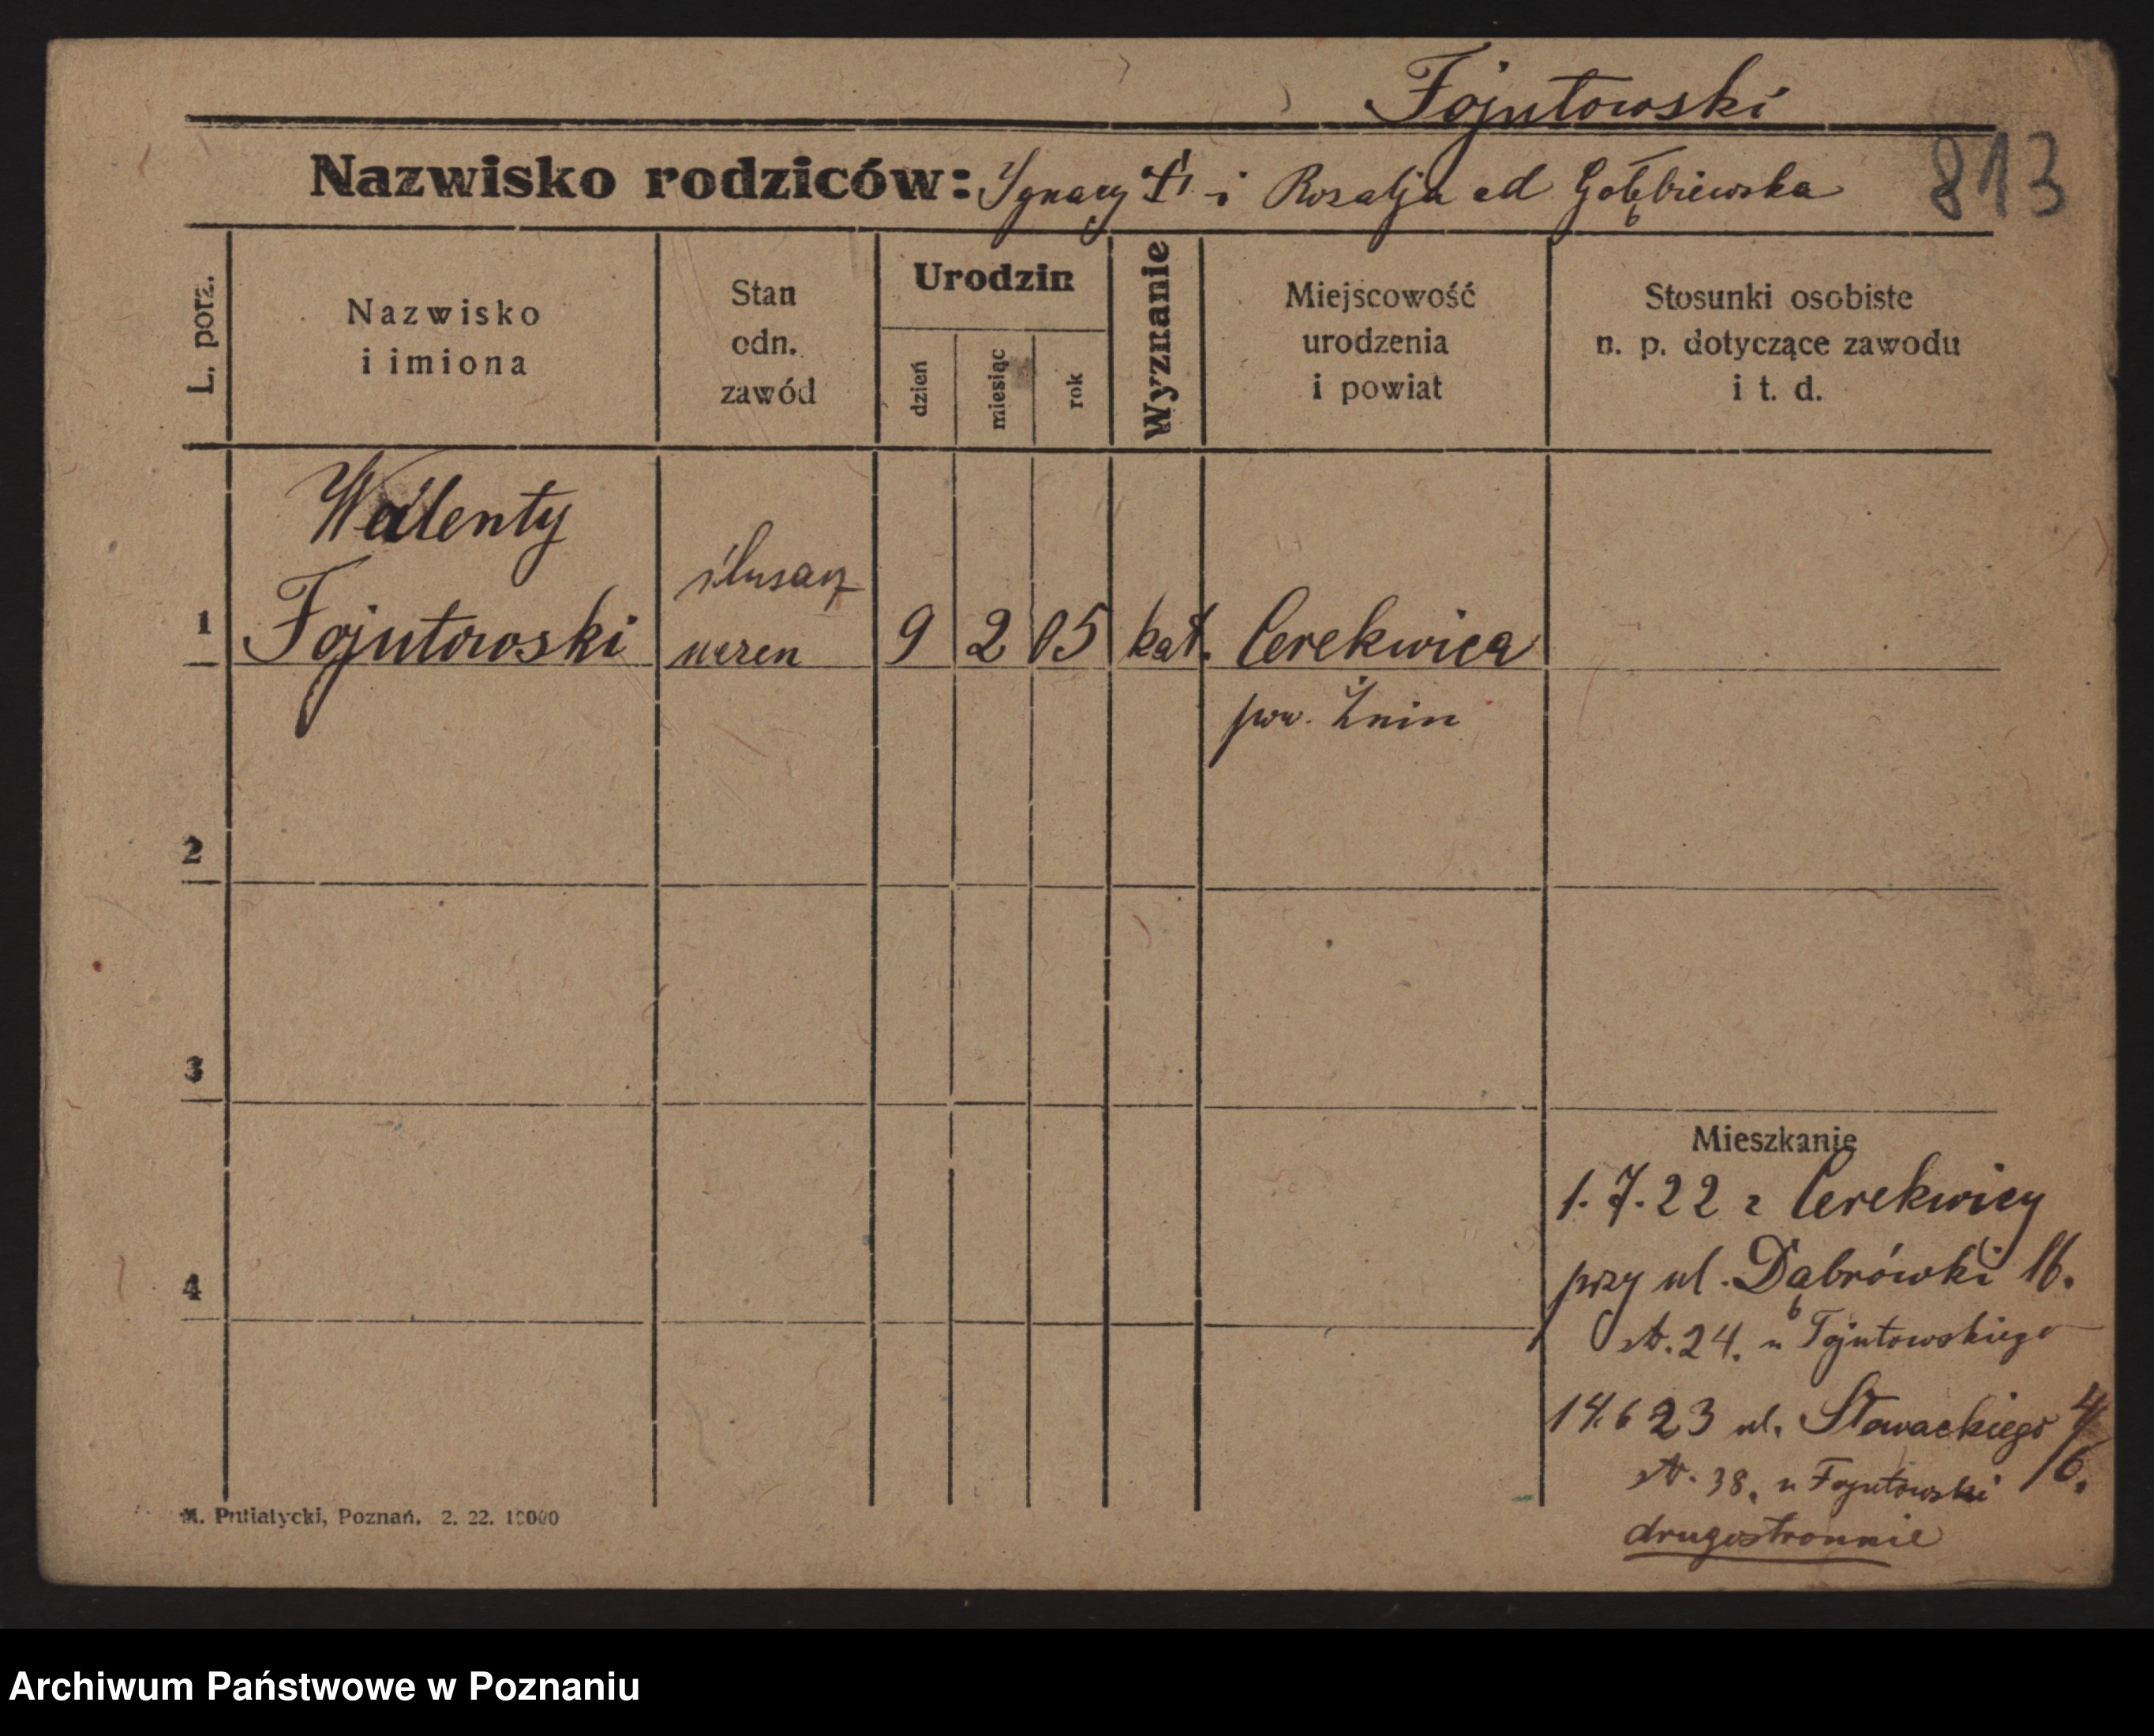 Fojutowski
Nazwisko rodziców: Ignacy i Rozalja od Gołębiewska
813
L. porz.
Nazwisko
i imiona
Stan
odn.
zawód
Urodzin
dzień
miesiąc
rok
Wyznanie
Miejscowość
urodzenia
i powiat
Stosunki osobiste
n. p. dotyczące zawodu
i t. d.
1
Walenty
Fojutowski
ślusarz
uczeń
9
2
05
kat.
Cerekwica
pow. Żnin
2
3
4
Mieszkanie
1.7.22 z Cerekwicy
przy ul. Dąbrówki 16.
str. 24. u Fojutowskiego
14.6 23 ul. Słowackiego 4/6.
str. 38. u Fojutowski
drugostronnie
M. Putiatycki, Poznań. 2. 22. 10000
Archiwum Państwowe w Poznaniu